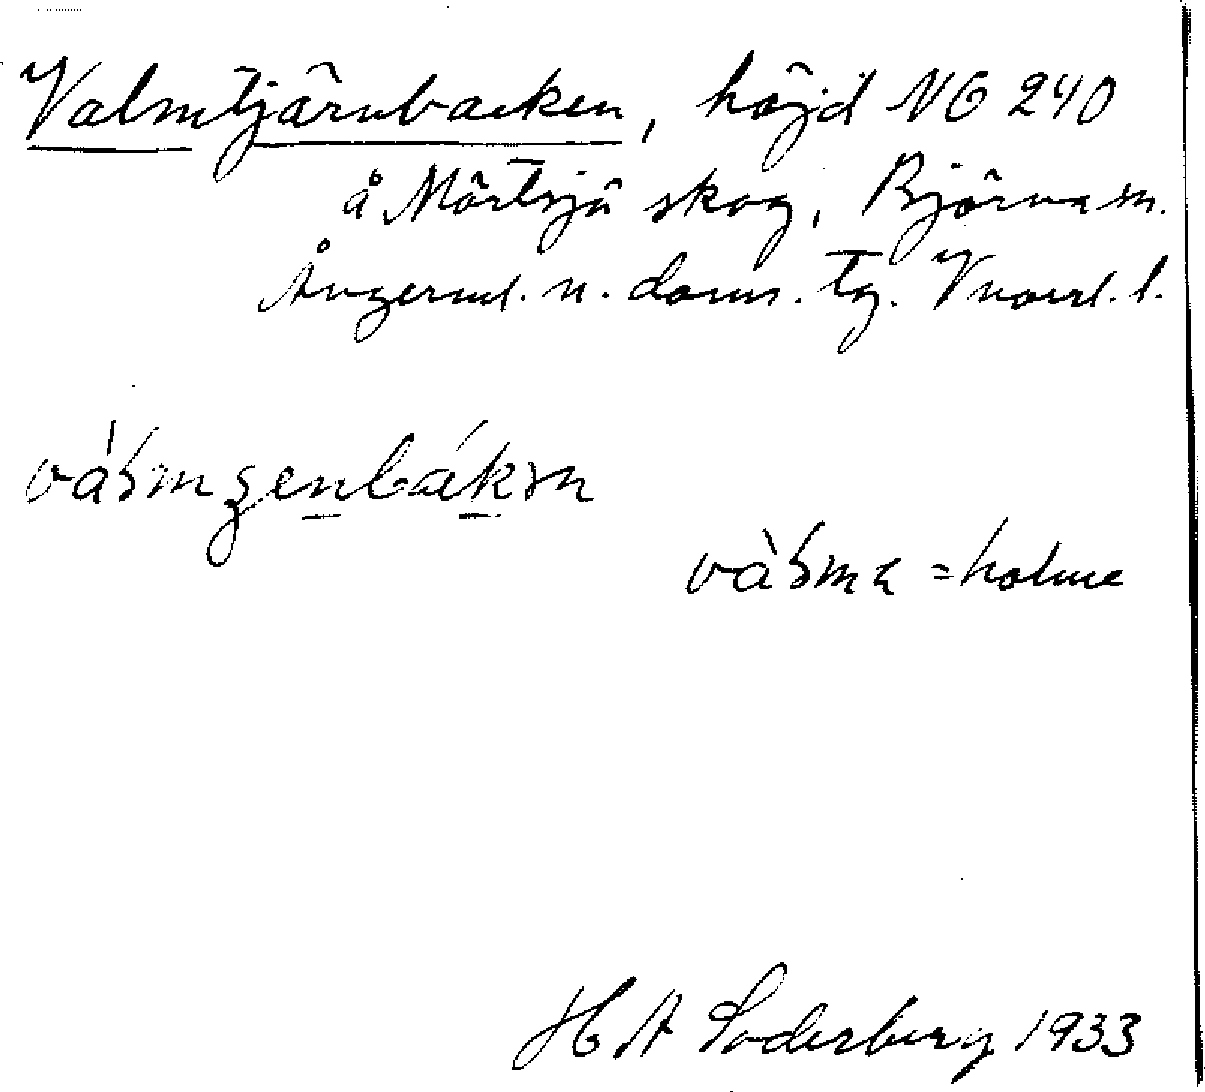 Valmtjärnbacken, höjd NG 240
å Mörtsjö skog, Björna sn.
Ångerml. n. doms. tg. Vnorrl. l.
= holme
H A Söderberg 1933